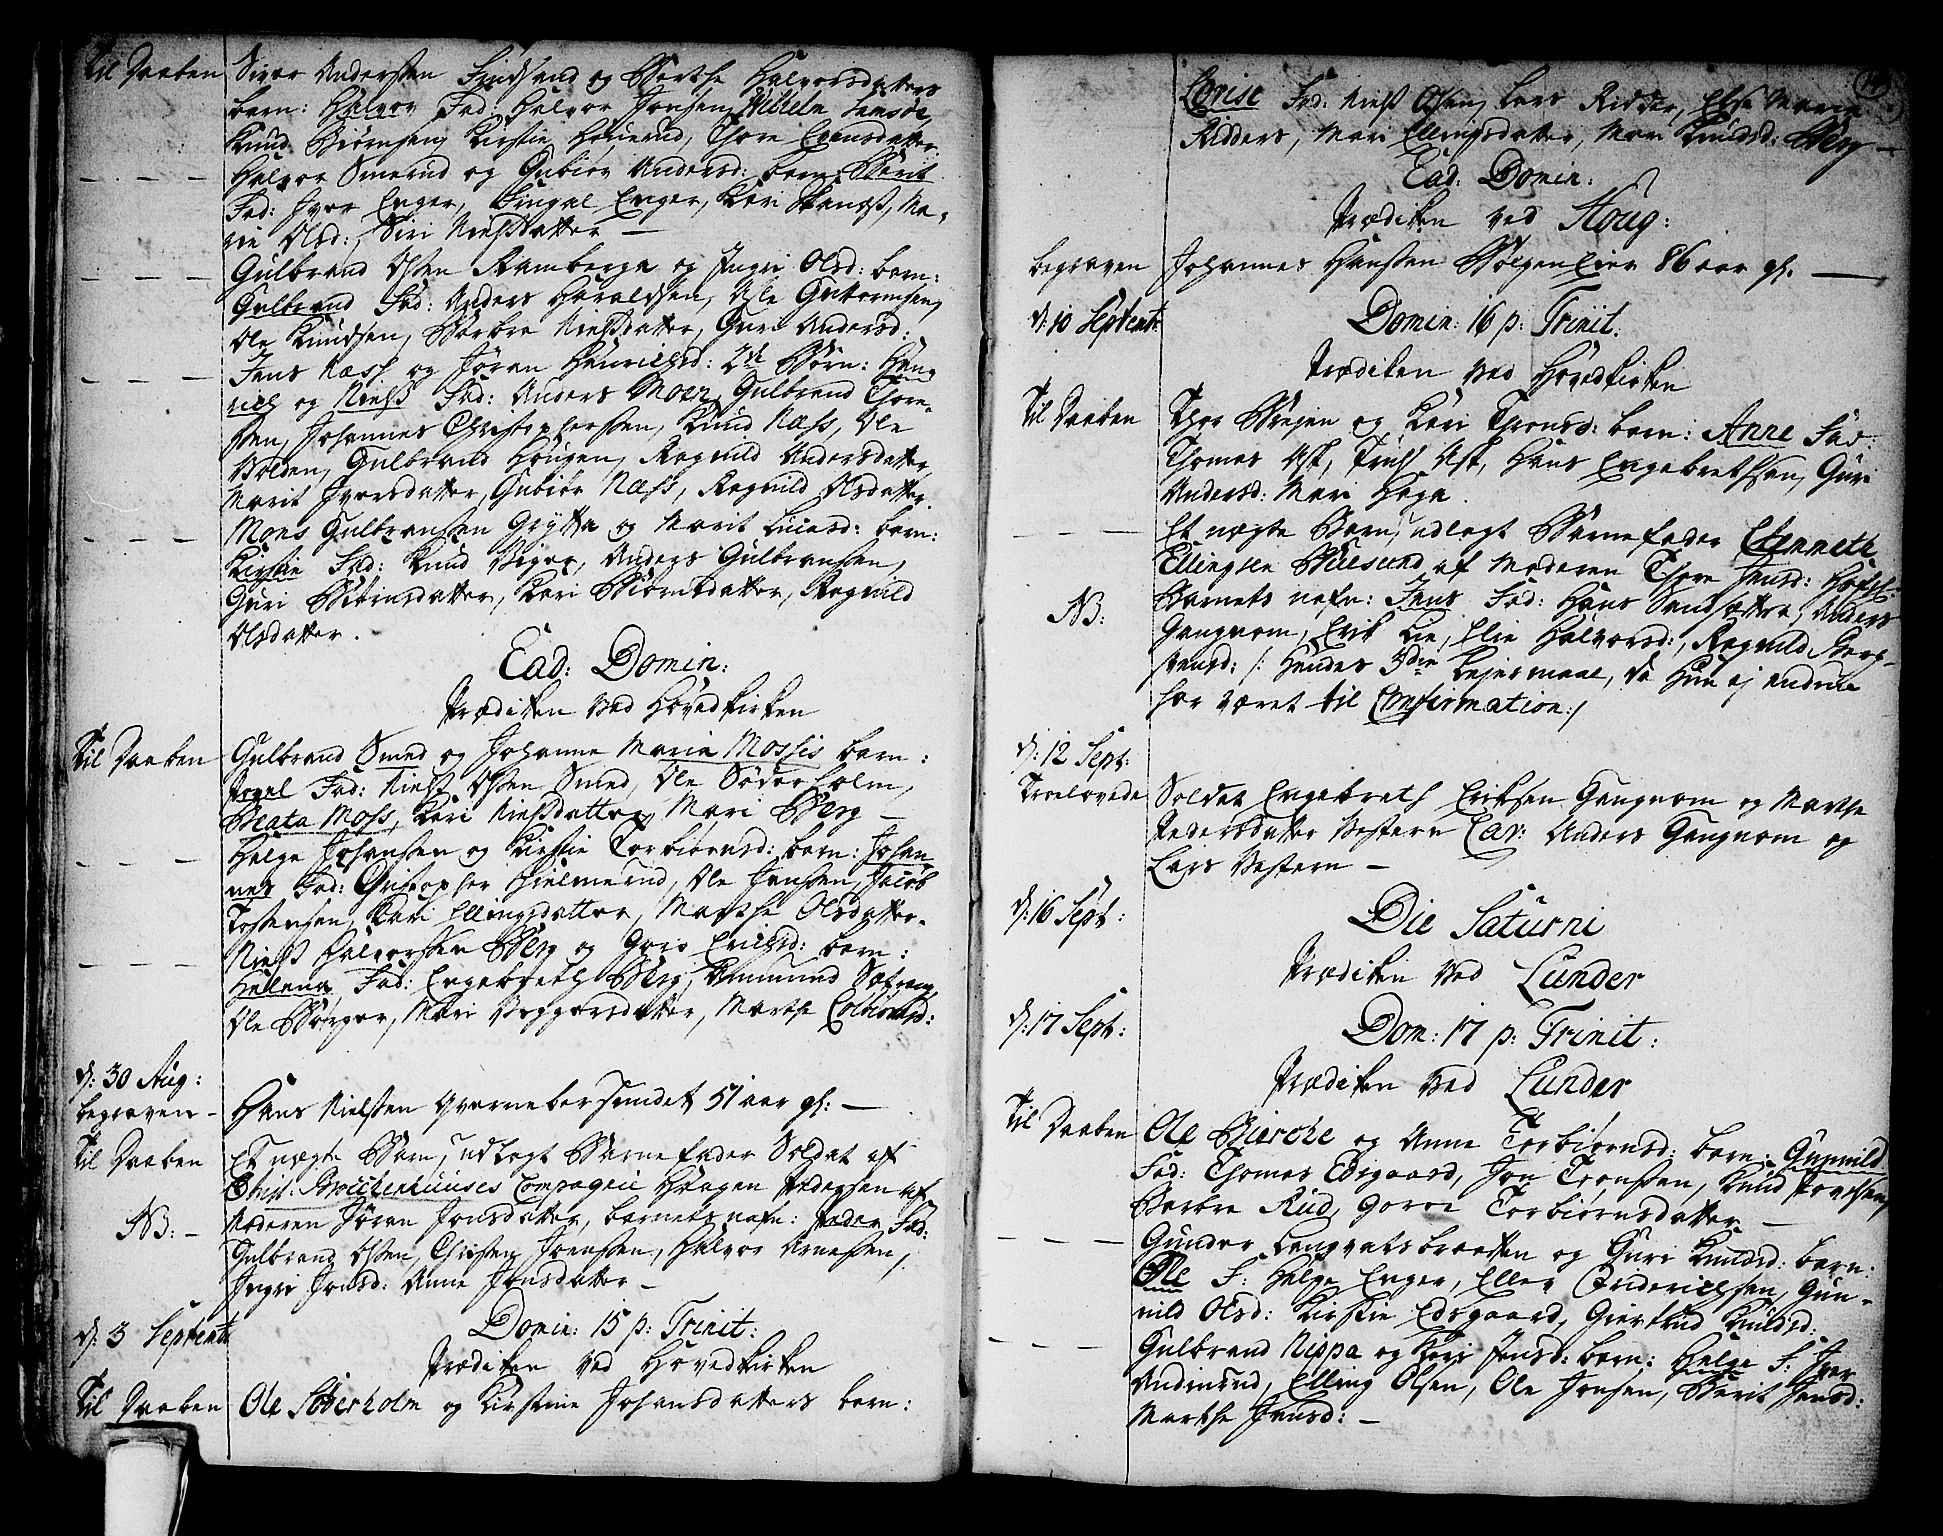 Til Daaben Siver Andersen Findsand og Berthe Halvorsdatters
barn: Halvor Fad: Halvor Jonsen, Vilhelm Samsøe,
Knud Biørnsen, Kirstie Houerud, Thore Evensdatter
Halvor Smerud og Gubiør Andersd: barn: Berit
Fad: Iver Enger, Engel Enger, Kari Skandst, Ma-
rie Olsd:, Siri Nielsdatter —
Gulbrand Olsen Ramberga og Ingri Olsd: barn:
Gulbrand Fad: Anders Haraldsen, Asle Guttormsen,
Ole Knudsen, Barbra Nielsdatter, Guri Andersd:
Jens Næss og Jøran Henrichsd: 2de Børn: Hen-
rich og Niels Fad: Anders Moer, Gulbrand Thore-
sen, Johannes Christophersen, Knud Næss, Ole
Volden, Gulbrand Hougen, Ragnild Andersdatter
Marit Iversdatter, Gubiør Næss, Ragnild Olsdatter.
Mons Gulbransen Grytta og Marit Luiasd: barn:
Kirstie Fad: Knud Viger, Anders Gulbransen,
Guri Biørnsdatter, Kari Biørnsdatter, Ragnild
Olsdatter.
Ead: Domin:
Prædiken ved Hovedkirken
Til Daaben Gulbrand Smed og Johanne Maria Mossis barn:
Povel Fad: Niels Olsen Smed, Ole Söderholm,
Beata Moss, Kari Nielsdatter, Mari Berg —
Helge Johansen og Kirstie Torbiørnsd: barn: Johan-
nes Fad: Christopher Hielmerud, Ole Jensen, Jacob
Tostensen, Kari Ellingsdatter, Marthe Olsdatter.
Niels Halvorsen Berg og Goro Erichsd: barn:
Helena, Fad: Engebreth Berg, Amund
Ole Borger, Mari Veggersdatter, Marthe Colbiørnsd:
d: 30 Aug:
begraven — Hans Nielsen Qvernebersundet 51 aar gl: —
Til Daaben Et uægte Barn, udlagt Barnefader Soldat af
Christ: Brockenhuuses Compagnie Haagen Pedersen af
NB: — Moderen Jöran Jonsdatter, barnets nafn: Peder Fad:
Gulbrand Olsen, Christen Joensen, Halvor Arnesen,
Ingri Jonsd: Anne Jonsdatter —
d: 3 Septembr: Domin: 15 p: Trinit:
Prædiken ved Hovedkirken
Til Daaben Ole Söderholm og Kirstine Johansdatters barn:
Lovise Fad: Niels Olsen, Lars Ridder, Else Marie
Ridders, Mari Ellingsdatter, Mari Knudsd: Berg —
Ead: Domin:
Prædiken ved Houg:
begraven Johannes Hansen Bölgen Eier 86 aar gl. —
d: 10 Septembr: Domin: 16 p: Trinit.
Prædiken ved Hovedkirken
Til Daaben Thor Brejen og Kari Thronsd: barn: Anne Fad:
Thomas Ask, Truls Ask, Hans Engebrethsen, Guri
Andersd: Mari Haga.
Et uægte Barn, udlagt Barnefader Kenneth
Ellingsen Buesund af Moderen Thore Jensd:
NB: Barnets nafn: Jens Fad: Hans Sandsætter, Anders
Gangnom, Erik Lie, Elie Halvorsd:, Ragnild
stensd: /: Hendes 3die Lejermaal, da Hun ej endnu
har været til Confirmation:/
d: 12 Sept:
Troelovede Soldat Engebreth Eriksen Gangnom og Marthe
Pedersdatter Vestern Cav: Anders Gangnom og
Lars Vestern —
d: 16 Sept: Die Saturni
Prædiken ved Lunder
d: 17 Sept: Dom: 17 p: Trinit:
Prædiken ved Lunder
Til Daaben Ole Bierche og Anne Torbiørnsd: barn: Gunnild
Fad: Thomas Edsgaard, Jon Tronsen, Knud Povelsen,
Barbra Rud, Goroe Torbiørnsdatter —
Gunder Langvatsbraatten og Guri Knudsd: barn:
Ole F: Helge Enger, Eller Friderichsen, Gun-
nild Olsd: Kirstie Edsgaard, Giertrud Knudsd:
Gulbrand Nippa og Kari Jensd: barn: Helge F: Iver
Andinrud, Elling Olsen, Ole Jonsen, Berit Jensd:
Marthe Jensd: —